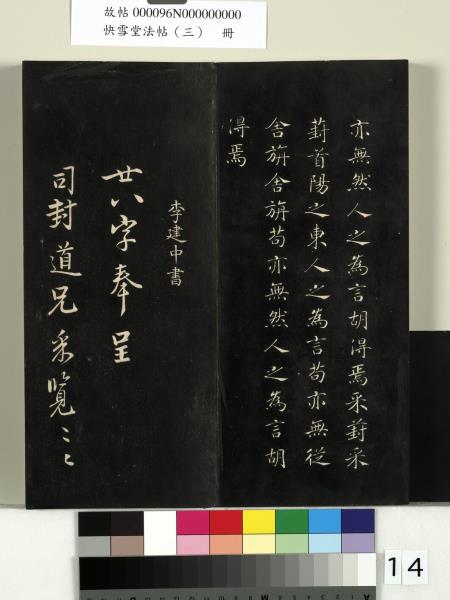 故帖 000096N000000000
快雪堂法帖（三） 冊
亦無然人之為言胡淂焉采葑采
葑首陽之東人之為言苟亦無從
舍旃舍旃苟亦無然人之為言胡
淂焉
李建中書
廿八字奉呈
司封道兄采覽〻〻
14